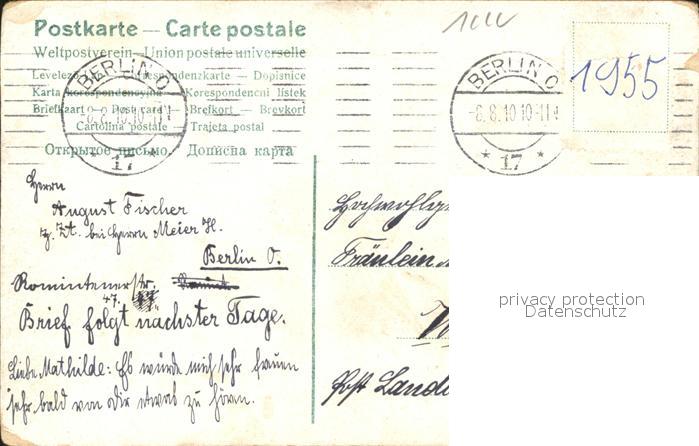 Postkarte — Carte postale
Weltpostverein — Union postale universelle
Levelező Korrespondenzkarte — Dopisnice
Karta korespondencyjna — Korespondenční lístek
Briefkaart — Post card — Brefkort — Brevkort
Cartolina postale — Trajeta postal
Открытое письмо. Дописна карта
BERLIN O
-8.8.10.10-11V
* 17 *
BERLIN O
-8.8.10.10-11V
* 17 *
1955
Herrn
August Fischer
z. Zt. bei Herrn Meier H.
Berlin O.
Romintenerstr.
47.
Brief folgt nächster Tage.
Liebe Mathilde: Es würde mich sehr freuen
sehr bald von Dir etwas zu hören.
Hochwohlg
Fräulein
W
Post Lande
privacy protection
Datenschutz